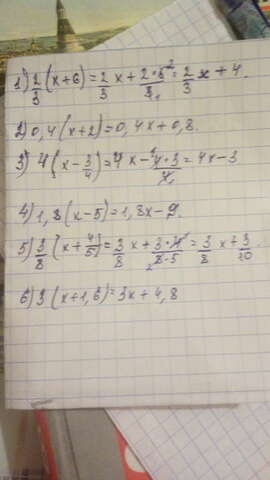 1) 2/3 (x+6) = 2/3 x + 2·6/3 = 2/3 x + 4.
2) 0,4(x+2) = 0,4x + 0,8.
3) 4(x - 3/4) = 4x - 4·3/4 = 4x - 3
4) 1,8(x-5) = 1,8x - 9.
5) 3/8 (x + 4/5) = 3/8 x + 3·4/8·5 = 3/8 x + 3/10
6) 3(x+1,6) = 3x + 4,8